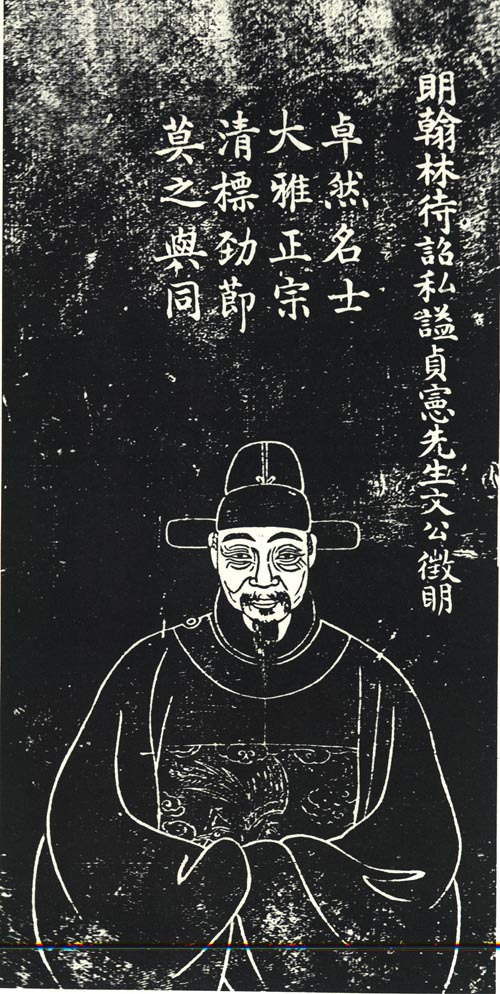 明翰林待詔私謚貞憲先生文公徵明
卓然名士
大雅正宗
清標勁節
莫之與同